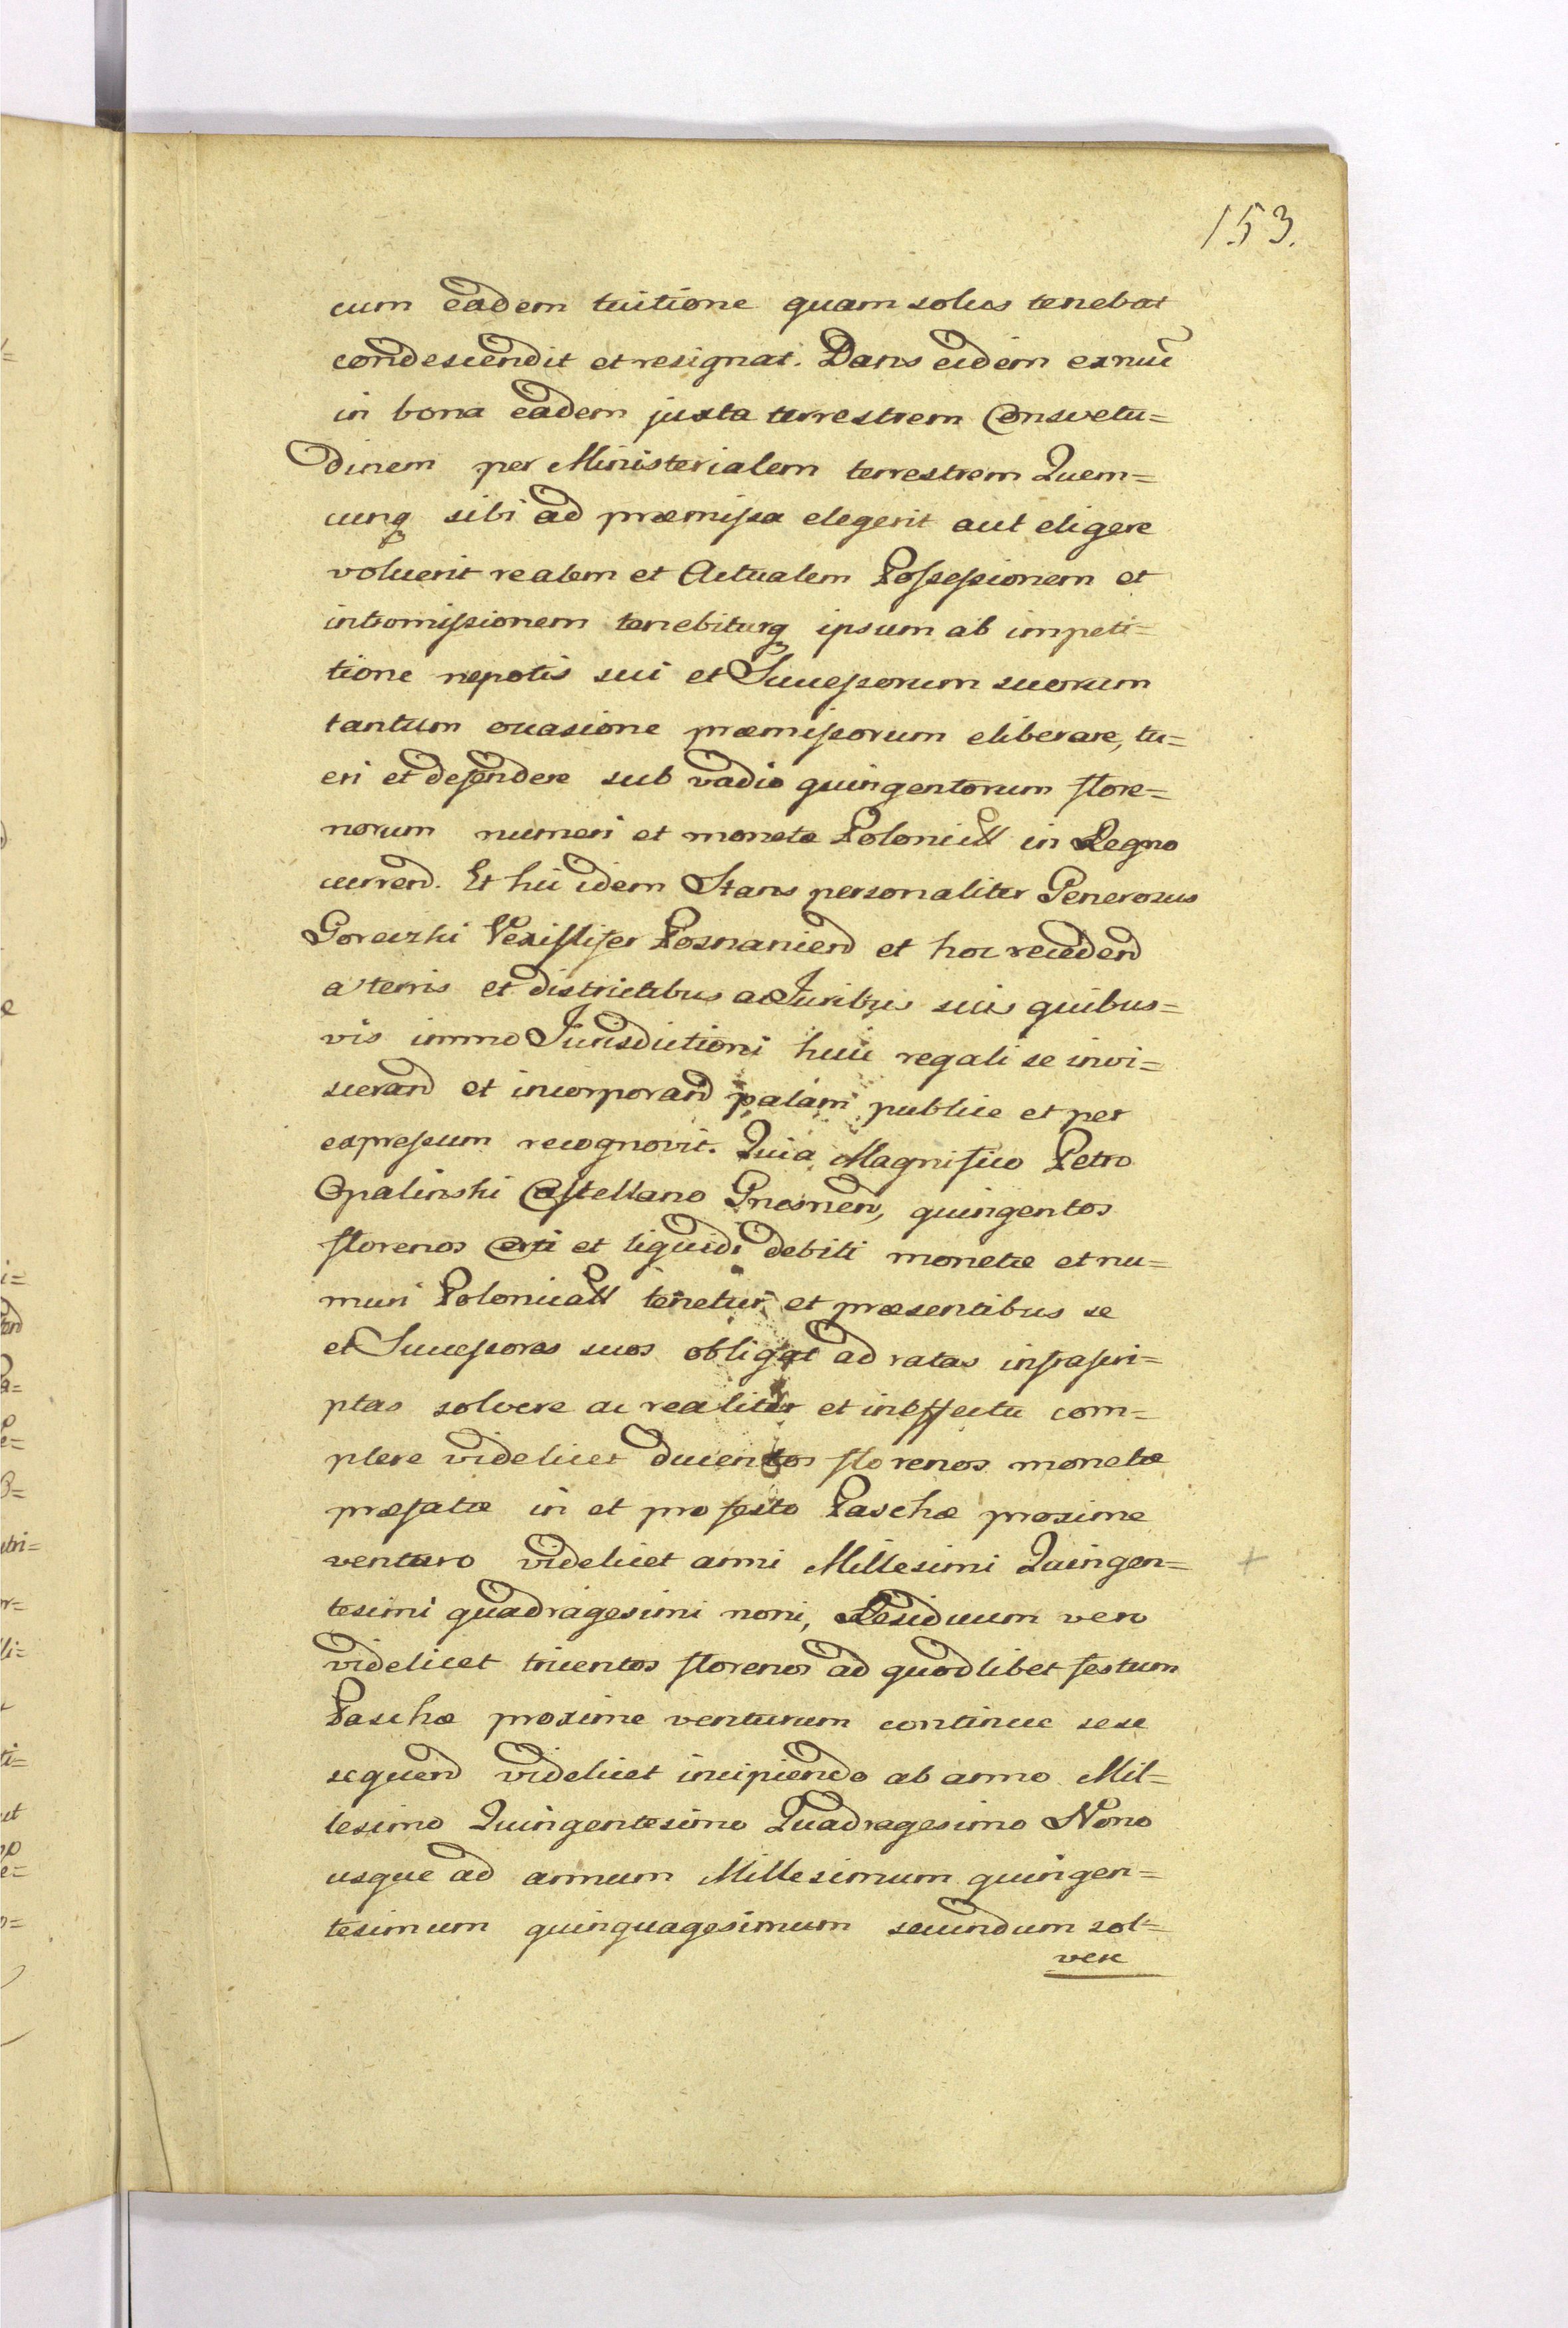 153.
cum eadem tuitione quam solus tenebat
condescendit et resignat. Dans eidem exnuc̃
in bona eadem juxta terrestrem Consvetu=
dinem per Ministerialem terrestrem Quem=
cunq sibi ad præmissa elegerit aut eligere
voluerit realem et Actualem Possessionem et
intromissionem tenebiturq ipsum ab impeti=
tione nepotis sui et Successorum suorum
tantum occasione præmissorum eliberare, tu=
eri et defendere sub vadio quingentorum flore=
norum numeri et monetæ Polonicall in Regno
currend. Et hic idem Stans personaliter Generosus
Goreczki Vexillifer Posnaniend et hoc recedend
a terris et districtibus ac Juribus suis quibus=
vis immo Jurisdictioni huic regali se invi=
scerand et incorporand palam publice et per
expressum recognovit. Quia Magnifico Petro
Opalinski Castellano Gnesnen, quingentos
florenos certi et liquidi debiti monetæ et nu=
meri Polonicall tenetur et præsentibus se
et Successores suos obligat ad ratas infrascri=
ptas solvere ac realiter et in effectu com=
plere videlicet ducentos florenos monetæ
præfatæ in et pro festo Paschæ proxime
venturo videlicet anni Millesimi Quingen= +
tesimi quadragesimi noni, Residuum vero
videlicet tricentos florenos ad quodlibet festum
Paschæ proxime venturum continue sese
sequend videlicet incipiendo ab anno Mil=
lesimo Quingentesimo Quadragesimo Nono
usque ad annum Millesimum quingen=
tesimum quinquagesimum secundum sol=
vere